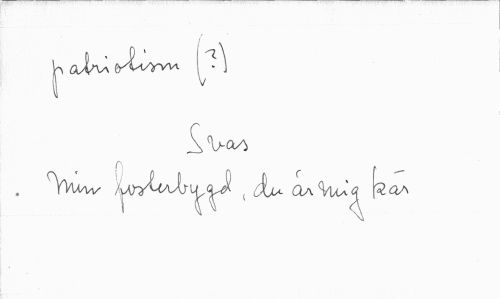 patriotism (?)
Svas
Min fosterbygd, du är mig kär